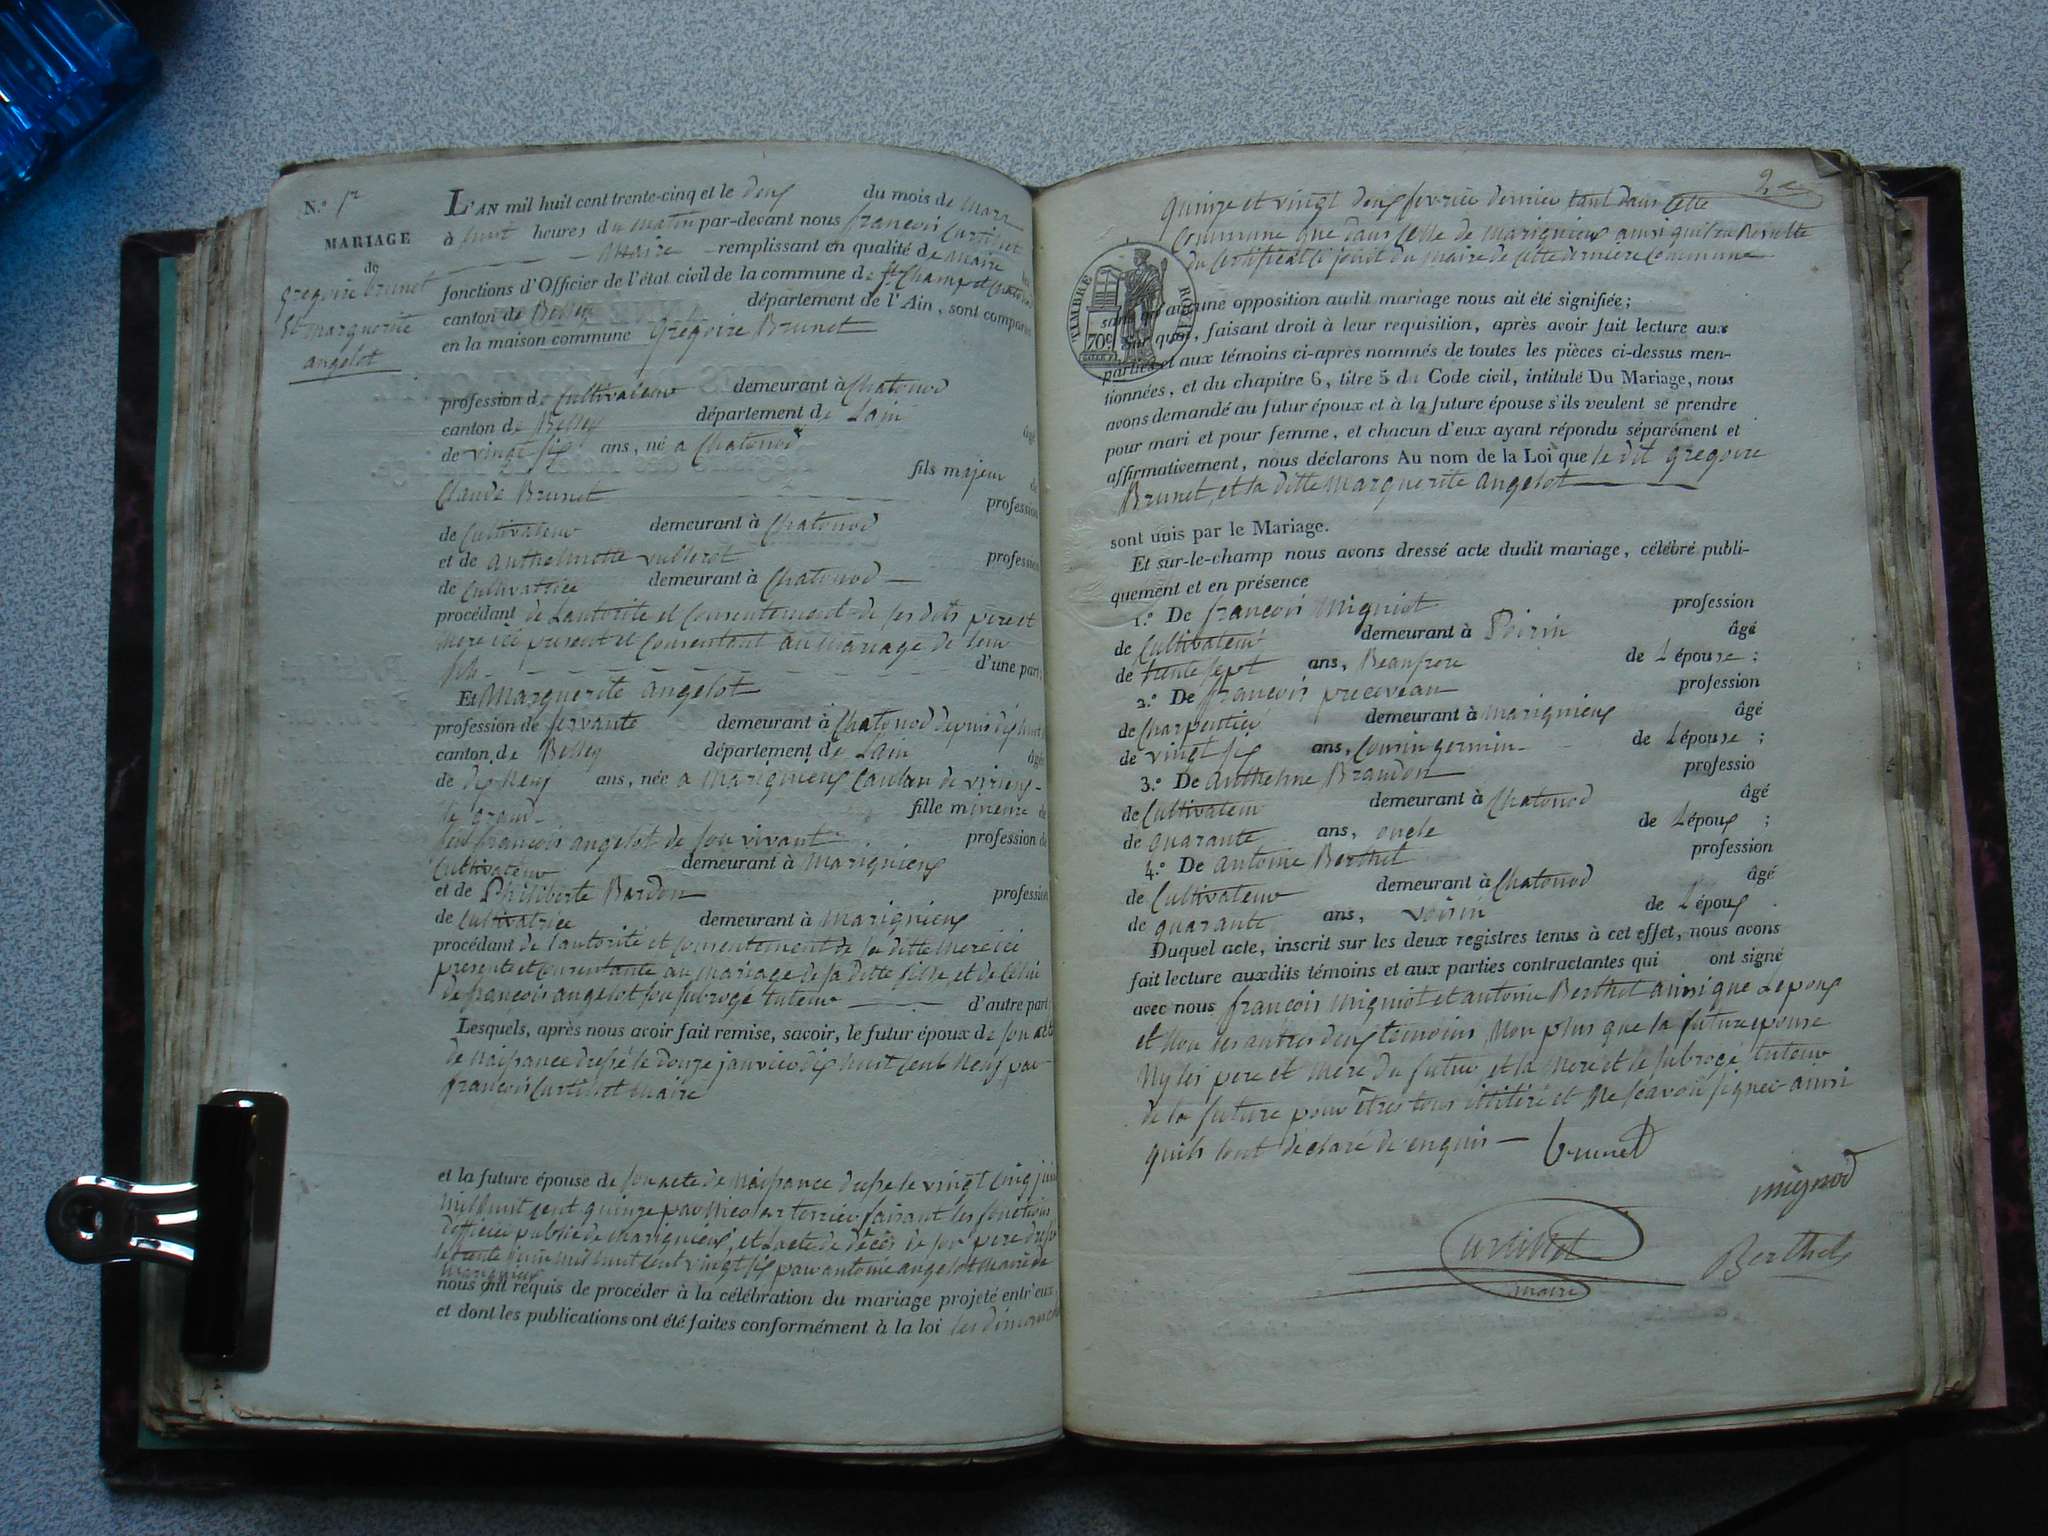 N.° 1er
MARIAGE
de
gregoire brunet
Et marguerite
angelot
L'AN mil huit cent trente-cinq et le deux du mois de Mars
à huit heures du matin par-devant nous francois Curtillet
maire remplissant en qualité de maire les
fonctions d'Officier de l'état civil de la commune de St Champ et Chatonod
canton de Belley département de l'Ain, sont comparus
en la maison commune Grégoire Brunet
profession de Cultivateur demeurant à Chatonod
canton de Belley département de Lain
âgé
de vingt six ans, né a Chatonod
fils majeur de
Claude Brunet profession
de Cultivateur demeurant à Chatonod
et de anthelmette vullerot profession
de Cultivatrice demeurant à Chatonod
procédant de Lautorité et Consentement de ses dits pere et
mere ici present et Consentant au mariage de leur
fils d'une part;
Et Marguerite angelot
profession de servante demeurant à Chatonod depuis dix huit
canton de Belley département de Lain âgée
de dix neuf ans, née a Marignieux Canton de virieux
le grand fille mineure de
feu francois angelot de son vivant profession de
Cultivateur demeurant à Marignieux
et de Philiberte Bardon profession
de Cultivatrice demeurant à Marignieux
procédant de l'autorité et consentement de sa ditte mere ici
presente et consentante au mariage de sa ditte fille et de Celui
de françois angelot son subrogé tuteur d'autre part
Lesquels, après nous avoir fait remise, savoir, le futur époux de son acte
de Naissance dressé le douze janvier dix huit cent Neuf par
francois Curtillet maire
et la future épouse de son acte de Naissance dressé le vingt cinq juin
mil huit cent quinze par Nicolas terrier faisant les fonctions
d'officier public de Marignieux, et Lacte de décès de son pere dressé
le trente juin mil huit cent vingt six par antoine angelot Maire de
Marignieux
nous ont requis de procéder à la célébration du mariage projeté entr'eux
et dont les publications ont été faites conformément à la loi les dimanches
2e
quinze et vingt deux fevrier dernier tant dans Cette
Commune que dans Celle de Marignieux ainsi quil en Resulte
du Certificat Ci joint du maire de Cette derniere Commune
TIMBRE ROYAL
70c.
sans qu'aucune opposition audit mariage nous ait été signifiée;
Sur quoi, faisant droit à leur requisition, après avoir fait lecture aux
parties et aux témoins ci-après nommés de toutes les pièces ci-dessus men-
tionnées, et du chapitre 6, titre 5 du Code civil, intitulé Du Mariage, nous
avons demandé au futur époux et à la future épouse s'ils veulent se prendre
pour mari et pour femme, et chacun d'eux ayant répondu séparément et
affirmativement, nous déclarons Au nom de la Loi que le dit gregoire
Brunet, et la ditte Marguerite angelot
sont unis par le Mariage.
Et sur-le-champ nous avons dressé acte dudit mariage, célébré publi-
quement et en présence
1.° De francois Migniot profession
de Cultivateur demeurant à Poirin âgé
de trente sept ans, Beaufrere de Lépouse;
2.° De francois preceveau profession
de Charpentier demeurant à Marignieux âgé
de vingt six ans, Cousin germin de Lépouse;
3.° De anthelme Brandon professio
de Cultivateur demeurant à Chatonod âgé
de quarante ans, oncle de Lépoux;
4.° De antoine Berthet profession
de Cultivateur demeurant à Chatonod âgé
de quarante ans, voisin de Lépoux.
Duquel acte, inscrit sur les deux registres tenus à cet effet, nous avons
fait lecture auxdits témoins et aux parties contractantes qui ont signé
avec nous francois Migniot et antoine Berthet ainsi que Lepoux
et Non les autres deux temoins Non plus que la future epouse
Ny les pere et Mere du futur et la Mere et le subrogé tuteur
de la future pour êtres tous illitéré et Ne sçavoir signer ainsi
quils lont déclaré de enquis
brunet
mignod
curtillet
maire
Berthet